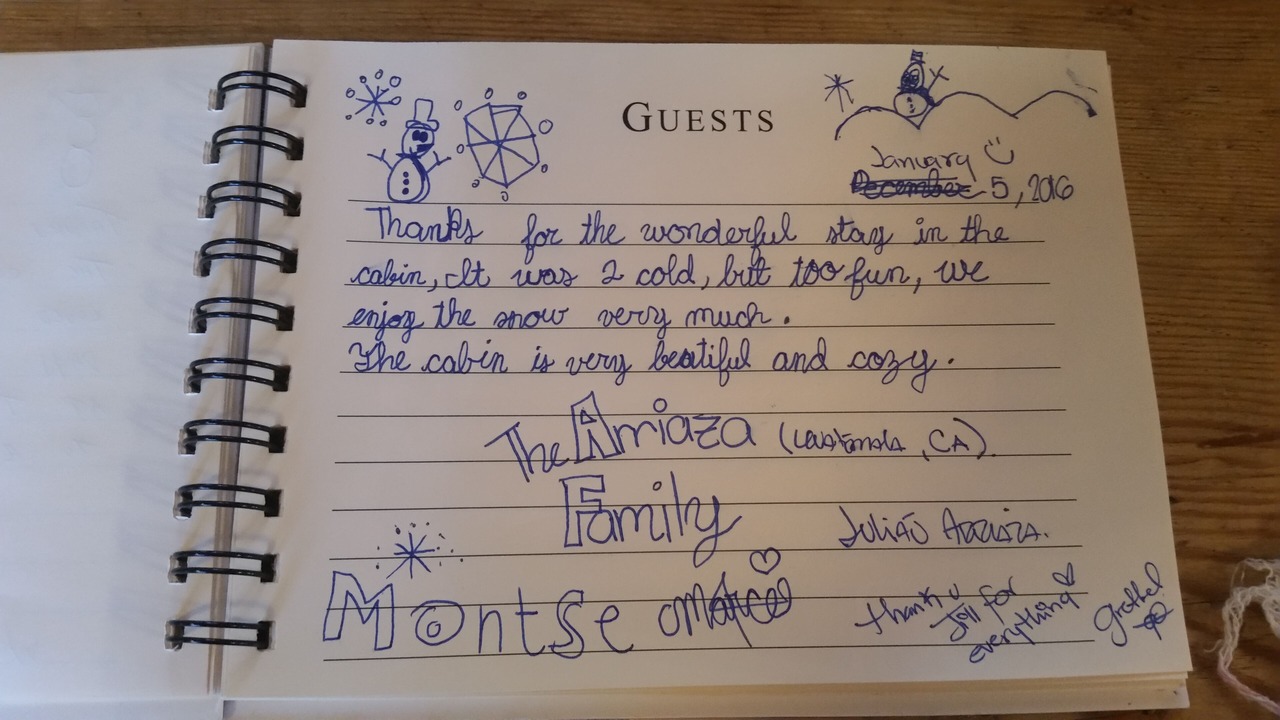 GUESTS
January
December 5, 2016
Thanks for the wonderful stay in the
cabin, It was 2 cold, but too fun, we
enjoy the snow very much.
The cabin is very beatiful and cozy.
The Amiaza (Guatemala, CA).
Family
Julian
Montse
thank u
Jill for
everything